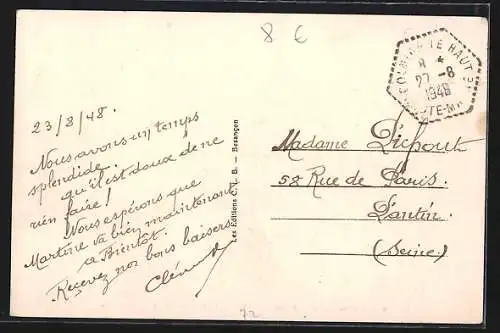 8 €
COLMIER LE HAUT
8 *
27 - 8
1948
HTE-MNE
23/8/48.
Nous avons un temps
splendide.
qu'il est doux de ne
rien faire !
Nous espérons que
Martine va bien maintenant
à Bientôt.
Recevez nos bons baisers
Clément
Les Editions C. L. B. — Besançon
Madame Pichout
58 Rue de Paris.
Pantin.
(Seine)
72